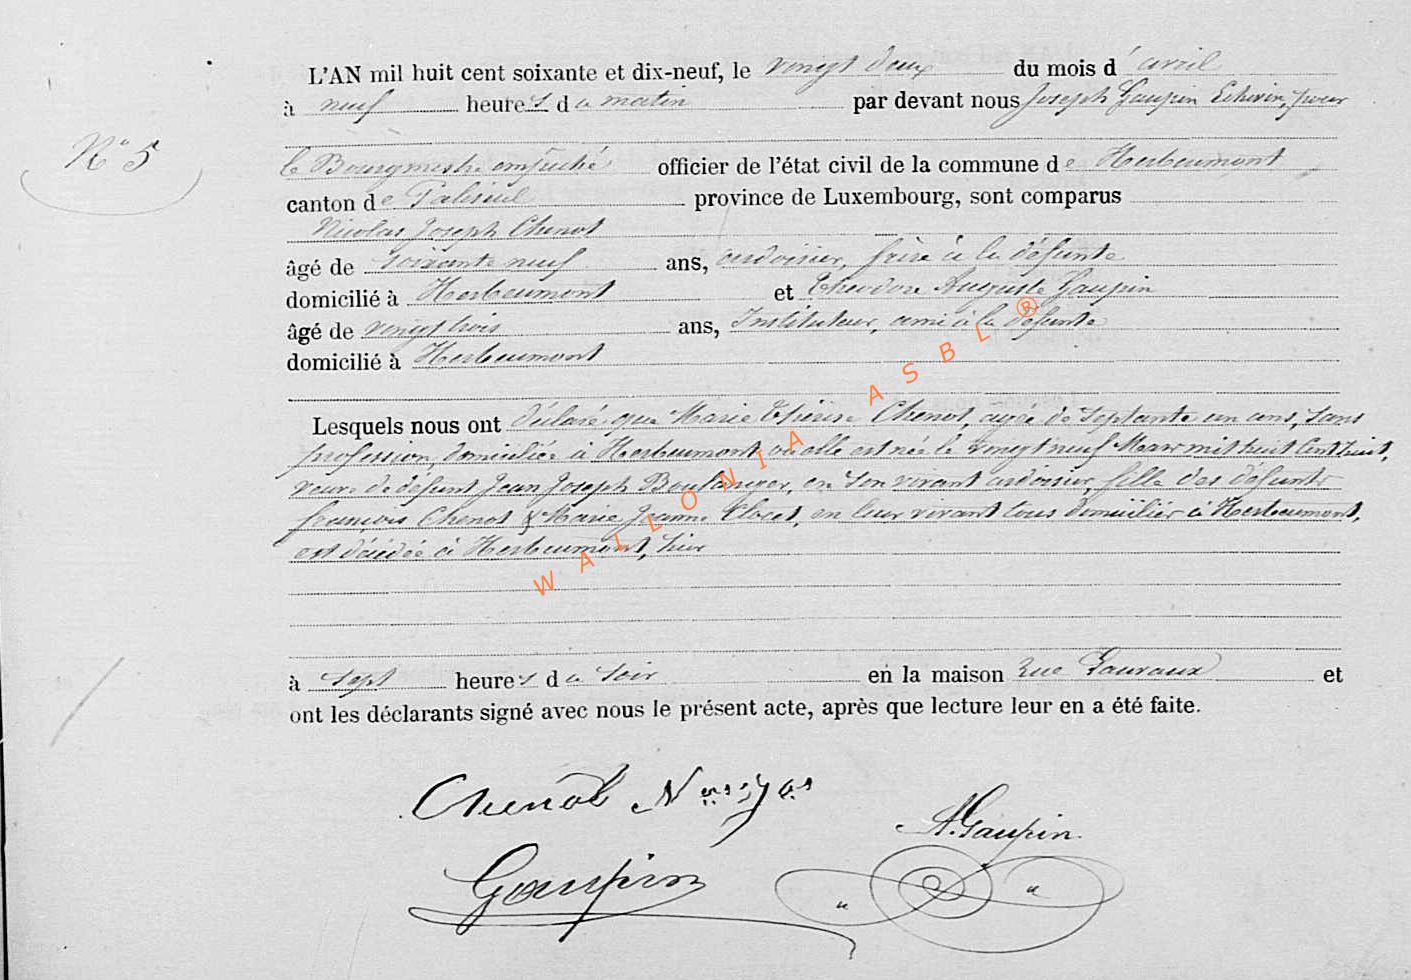 L'AN mil huit cent soixante et dix-neuf, le vingt deux du mois d'avril
à neuf heures du matin par devant nous Joseph Gaupin Echevin, pour
N° 5
le Bourgmestre empêché officier de l'état civil de la commune de Herbeumont
canton de Paliseul province de Luxembourg, sont comparus
Nicolas Joseph Chenot
âgé de soixante neuf ans, ardoisier, frère à la défunte
domicilié à Herbeumont et Théodore Auguste Gaupin
âgé de vingt trois ans, Instituteur, ami à la défunte
domicilié à Herbeumont
Lesquels nous ont déclaré que Marie Thérèse Chenot, agée de septante un ans, sans
profession, domiciliée à Herbeumont où elle est née le vingt neuf Mars mil huit cent huit,
veuve de défunt Jean Joseph Boulanger, en son vivant ardoisier, fille des défunts
françois Chenot & Marie Jeanne en leur vivant tous domiciliés à Herbeumont,
est décédée à Herbeumont, hier
à sept heures du soir en la maison rue Gauvaux et
ont les déclarants signé avec nous le présent acte, après que lecture leur en a été faite.
Chenot Nas Jh
A. Gaupin
Gaupin
WALLONIA ASBL ®